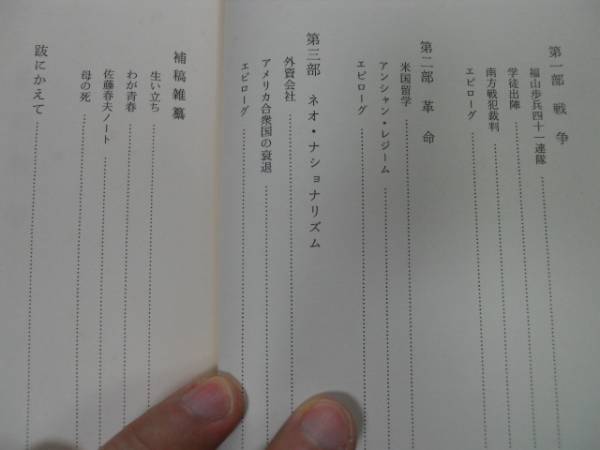 第一部 戦争
福山歩兵四十一連隊
学徒出陣
南方戦犯裁判
エピローグ
第二部 革命
米国留学
アンシャン・レジーム
エピローグ
第三部 ネオ・ナショナリズム
外資会社
アメリカ合衆国の衰退
エピローグ
補稿雑纂
生い立ち
わが青春
佐藤春夫ノート
母の死
跋にかえて